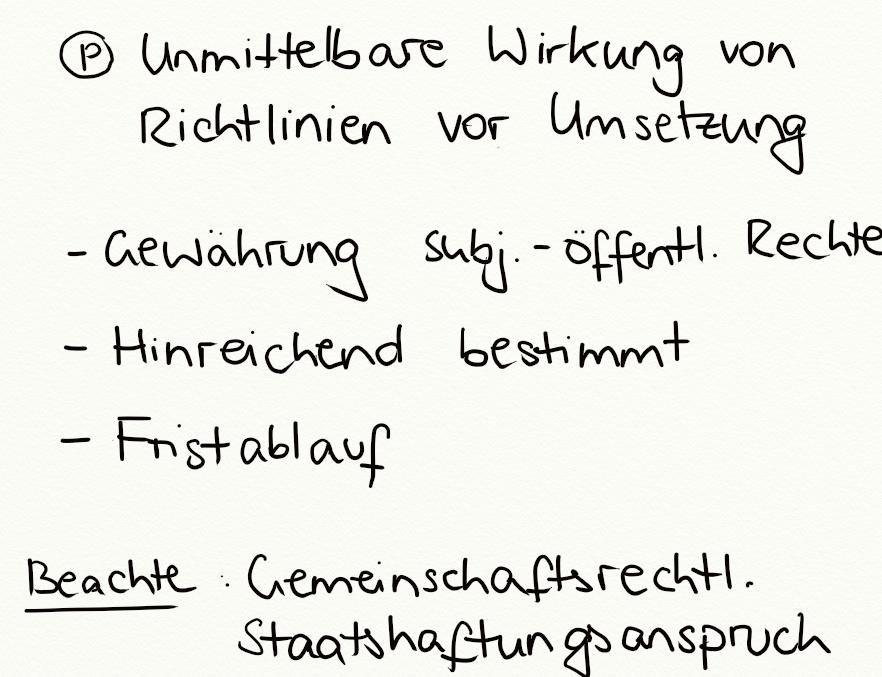 Ⓟ Unmittelbare Wirkung von
Richtlinien vor Umsetzung
- Gewährung subj.-öffentl. Rechte
- Hinreichend bestimmt
- Fristablauf
Beachte: Gemeinschaftsrechtl.
Staatshaftungsanspruch